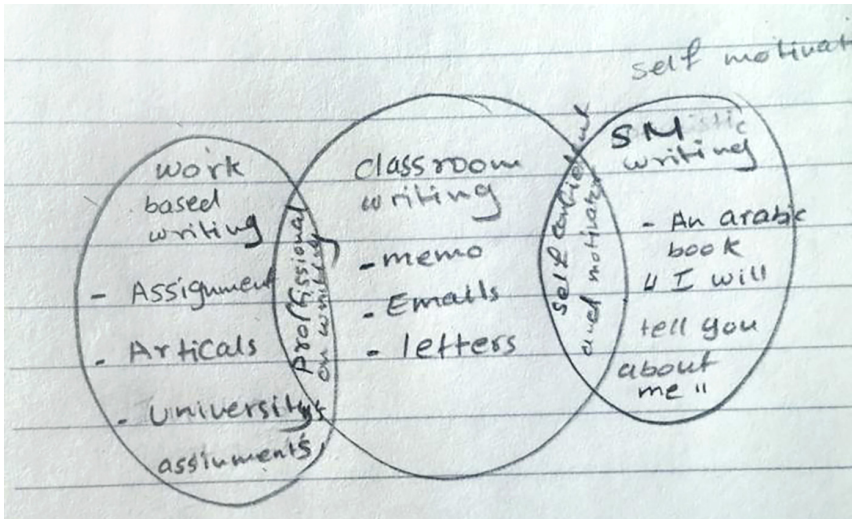 self motivat
work
based
writing
- Assignment
- Articals
- University's
assiunments
proffissional
on writing
classroom
writing
- memo
- Emails
- letters
self confident
and motivates
SM
writing
- An arabic
book
" I will
tell you
about
me "